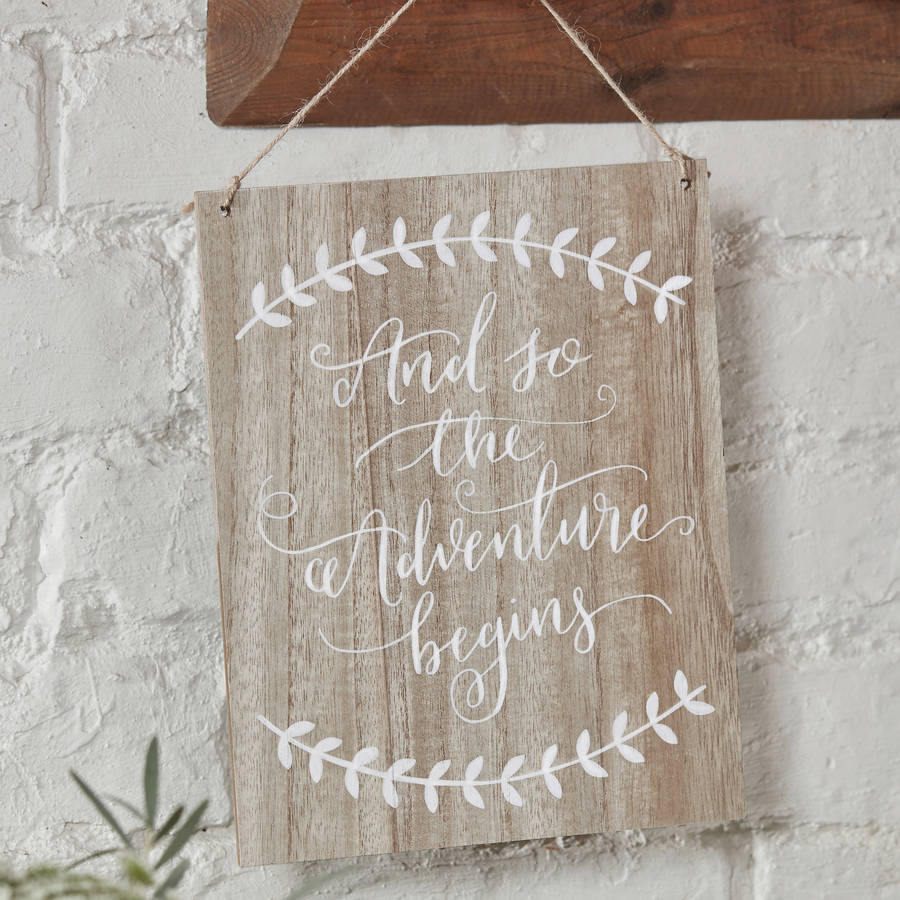 And so
the
Adventure
begins